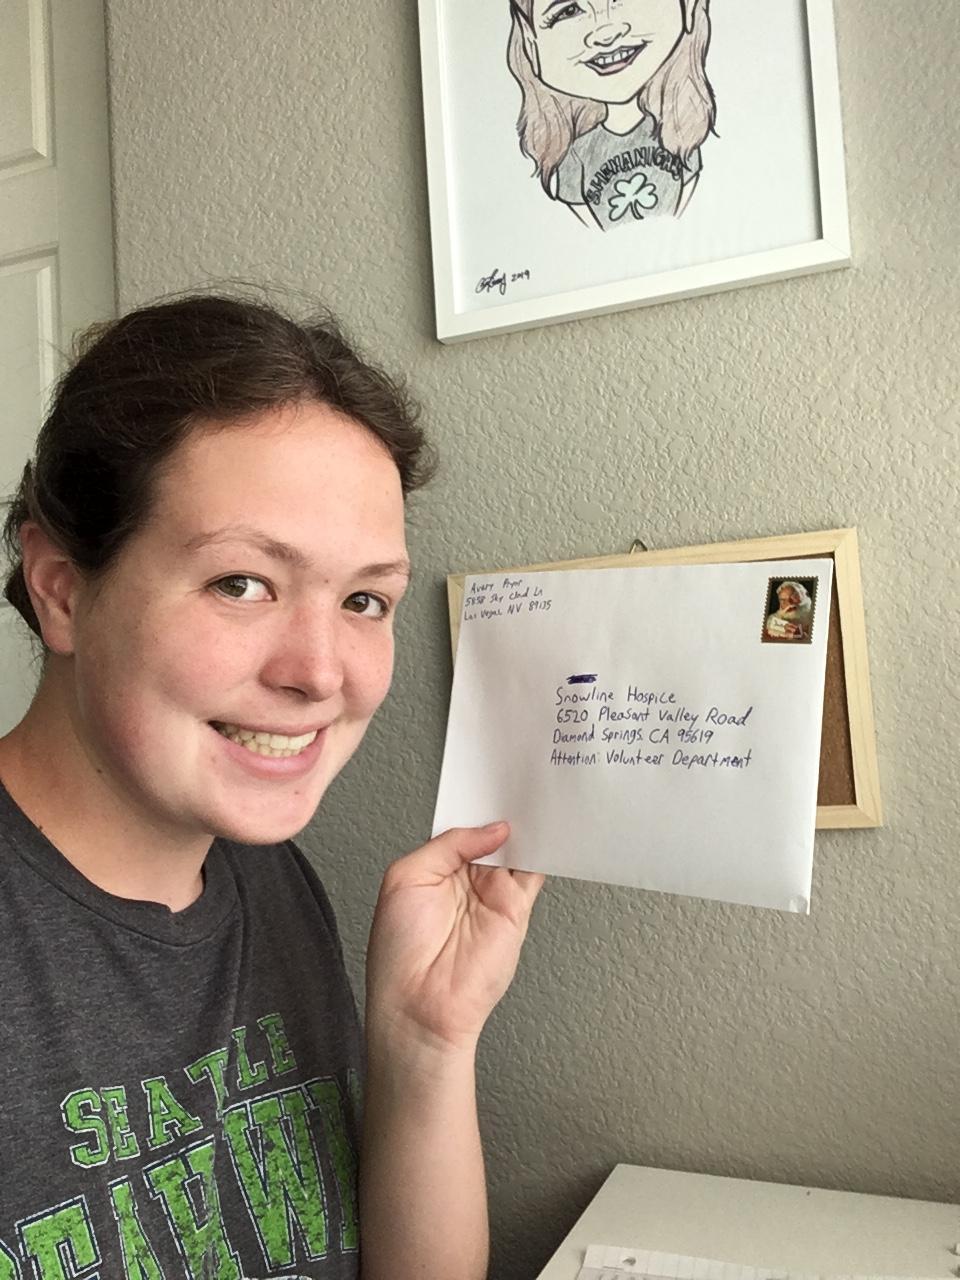 SHENANIGANS
2019
Avery Pryor
5858 Sky Cloud Ln
Las Vegas NV 89135
Snowline Hospice
6520 Pleasant Valley Road
Diamond Springs, CA 95619
Attention: Volunteer Department
SEATTLE
SEAHAWKS